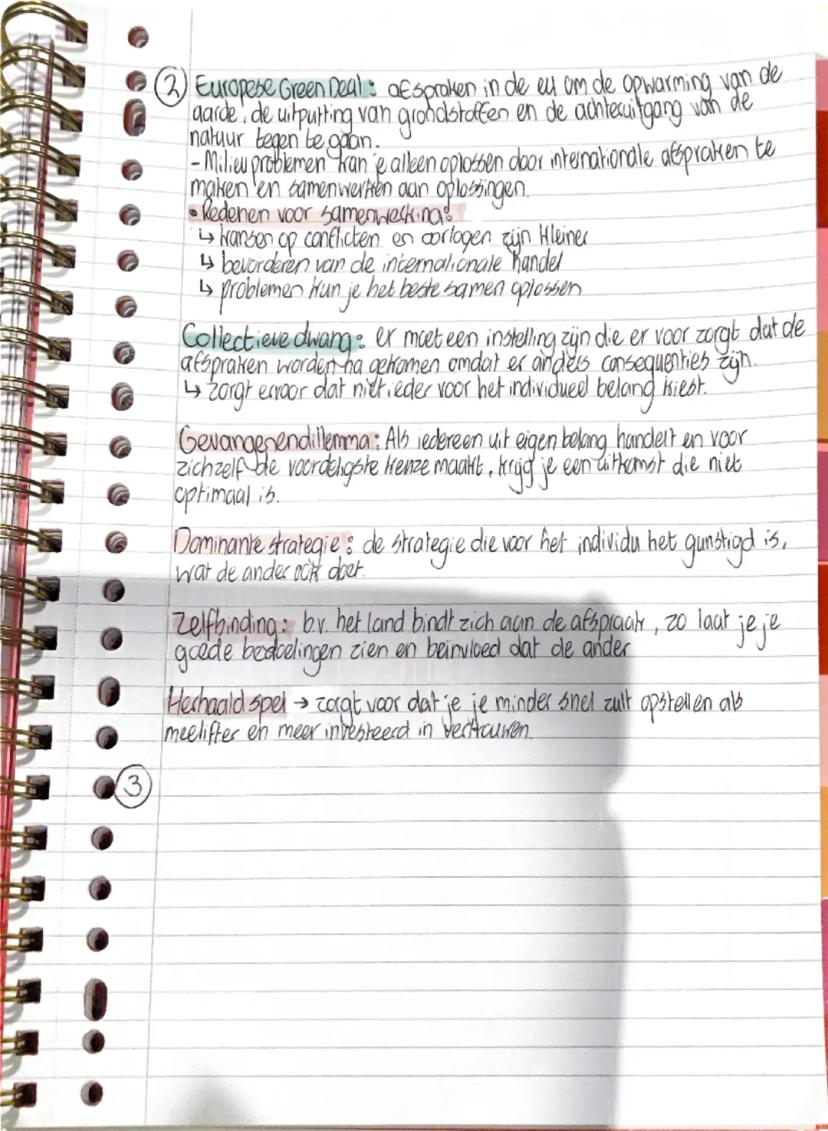 ② Europese Green Deal: afspraken in de eu om de opwarming van de
aarde, de uitputting van grondstoffen en de achteruitgang van de
natuur tegen te gaan.
- Milieuproblemen kan je alleen oplossen door internationale afspraken te
maken en samenwerken aan oplossingen.
• Redenen voor samenwerking:
↳ kansen op conflicten en oorlogen zijn kleiner
↳ bevorderen van de internationale handel
↳ problemen kun je het beste samen oplossen
Collectieve dwang: er moet een instelling zijn die er voor zorgt dat de
afspraken worden na gekomen omdat er anders consequenties zijn.
↳ zorgt ervoor dat niet ieder voor het individueel belang kiest.
Gevangenendillemma: Als iedereen uit eigen belang handelt en voor
zichzelf de voordeligste keuze maakt, krijg je een uitkomst die niet
optimaal is.
Dominante strategie: de strategie die voor het individu het gunstigd is,
wat de ander ook doet.
Zelfbinding: bv. het land bindt zich aan de afspraak, zo laat je je
goede bedoelingen zien en beinvloed dat de ander
Herhaald spel → zorgt voor dat je je minder snel zult opstellen als
meelifter en meer investeerd in vertrouwen.
③